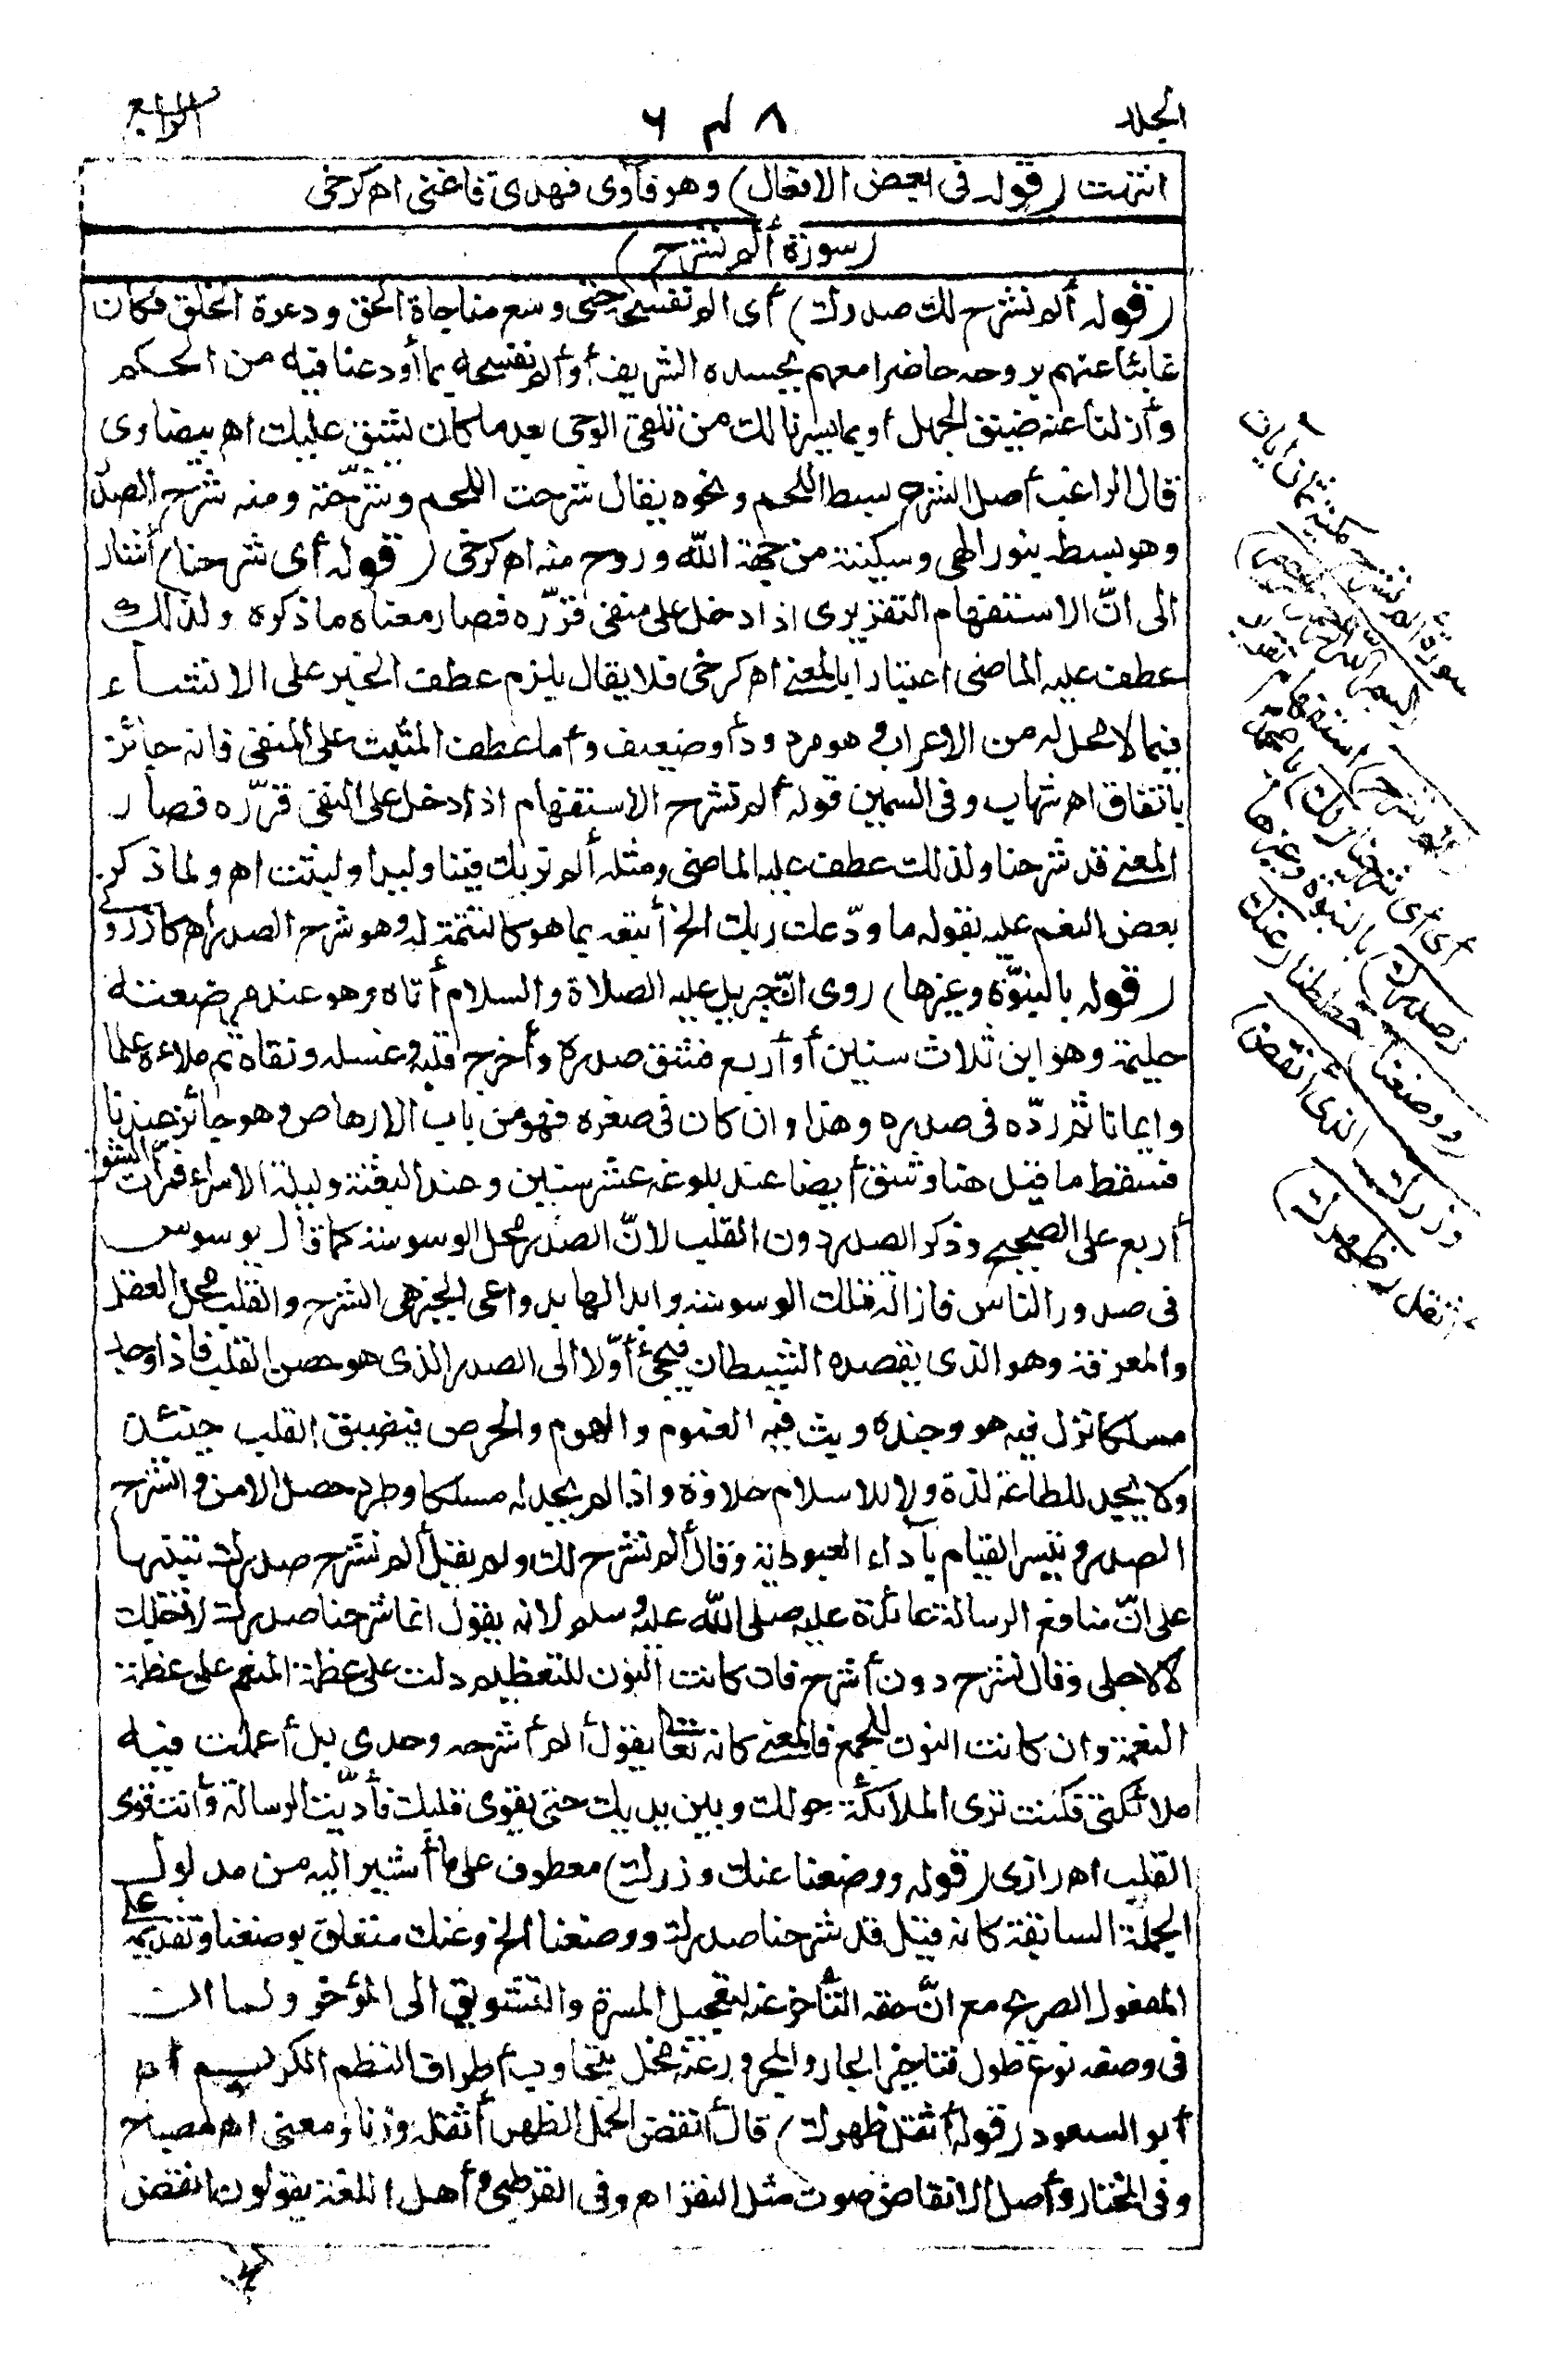 الجلد
٨٤٦
الرابع
انتهت (قوله فى بعض الافعال) وهو فآوى فهدى فاغنى اه كرخى
(سورة ألم نشرح)
(قوله ألم نشرح لك صدرك) أى ألم نفسحه حتى وسع مناجاة الحق ودعوة الخلق فكان
غائبا عنهم بروحه حاضرا معهم بجسده الشريف أو ألم نفسحه بما أودعنا فيه من الحكم
وأزلنا عنه ضيق الجهل أو بما يسرنا لك من تلقى الوحى بعد ما كان يشق عليك اه بيضاوى
قال الراغب أصل الشرح بسط اللحم ونحوه يقال شرحت اللحم وشرّحته ومنه شرح الصدر
وهو بسطه بنور الهى وسكينة من جهة الله وروح منه اه كرخى (قوله أى شرحنا) أشار
الى انّ الاستفهام التقريرى اذا دخل على منفى قرّره فصار معناه ما ذكره ولذلك
عطف عليه الماضى اعتبارا بالمعنى اه كرخى فلا يقال يلزم عطف الخبر على الانشاء
فيما لا محل له من الاعراب وهو مردود أو ضعيف وأما عطف المثبت على المنفى فانه جائز
باتفاق اه شهاب وفى السمين قوله ألم نشرح الاستفهام اذا دخل على النفى قرّره فصار
المعنى قد شرحنا ولذلك عطف عليه الماضى ومثله ألم نربك فينا وليدا ولبثت اه ولما ذكر
بعض النعم عليه بقوله ما ودّعك ربك الخ أتبعه بما هو كالتتمة له وهو شرح الصدر اه كازرونى
(قوله بالنبوّة وغيرها) روى انّ جبريل عليه الصلاة والسلام أتاه وهو عند مرضعته
حليمة وهو ابن ثلاث سنين أو أربع فشق صدره وأخرج قلبه وغسله ونقاه ثم ملاءه علما
وايمانا ثم ردّه فى صدره وهذا وان كان فى صغره فهو من باب الارهاص وهو جائز عندنا
فسقط ما قيل هنا وشق أيضا عند بلوغه عشر سنين وعند البعثة وليلة الاسراء فمرّات الشق
أربع على الصحيح وذكر الصدر دون القلب لانّ الصدر محل الوسوسة كما قال يوسوس
فى صدور الناس فازالة تلك الوسوسة وابدالها بدواعى الخير هى الشرح والقلب محل العقل
والمعرفة وهو الذى يقصده الشيطان فيجئ أوّلا الى الصدر الذى هو حصن القلب فاذا وجد
مسلكا نزل فيه هو وجنده وبث فيه الغموم والهموم والحرص فيضيق القلب حينئذ
ولا يجد للطاعة لذة ولا للاسلام حلاوة واذا لم يجد له مسلكا وطرد حصل الامن وانشرح
الصدر وتيسر القيام بآداء العبودية وقال ألم نشرح لك ولم يقل ألم نشرح صدرك تنبيها
على انّ منافع الرسالة عائدة عليه صلى الله عليه وسلم لانه يقول انما شرحنا صدرك لاجلك
لا لاجلى وقال نشرح دون أشرح فان كانت النون للتعظيم دلت على عظمة المنعم على عظمة
النعمة وان كانت النون للجمع فالمعنى كانه تعالى يقول ألم أشرحه وحدى بل أعملت فيه
ملائكتى فكنت ترى الملائكة حولك وبين يديك حتى يقوى قلبك فأدّيت الرسالة وأنت قوى
القلب اه رازى (قوله ووضعنا عنك وزرك) معطوف على ما أشير اليه من مدلول
الجملة السابقة كانه قيل قد شرحنا صدرك ووضعنا الخ وعنك متعلق بوضعنا وتقديمه على
المفعول الصريح مع انّ حقه التأخر عنه لتعجيل المسرة والتشويق الى المؤخر ولما ان
فى وصفه نوع طول فتاخير الجار والمجرور عنه مخل بتجاوب أطراف النظم الكريم اه
أبو السعود (قوله أثقل ظهرك) قال أنقض الحمل الظهر أثقله وزنا ومعنى اه مصباح
وفى المختار وأصل الانقاض صوت مثل النقر اه وفى القرطبى وأهل اللغة يقولون انقض
سورة ألم نشرح مكية ثمان آيات
(بسم الله الرحمن الرحيم)
(ألم نشرح) استفهام تقرير
أى شرحنا (لك) يا محمد
(صدرك) بالنبوة وغيرها
(ووضعنا) حططنا (عنك
وزرك الذى أنقض)
أثقل (ظهرك)